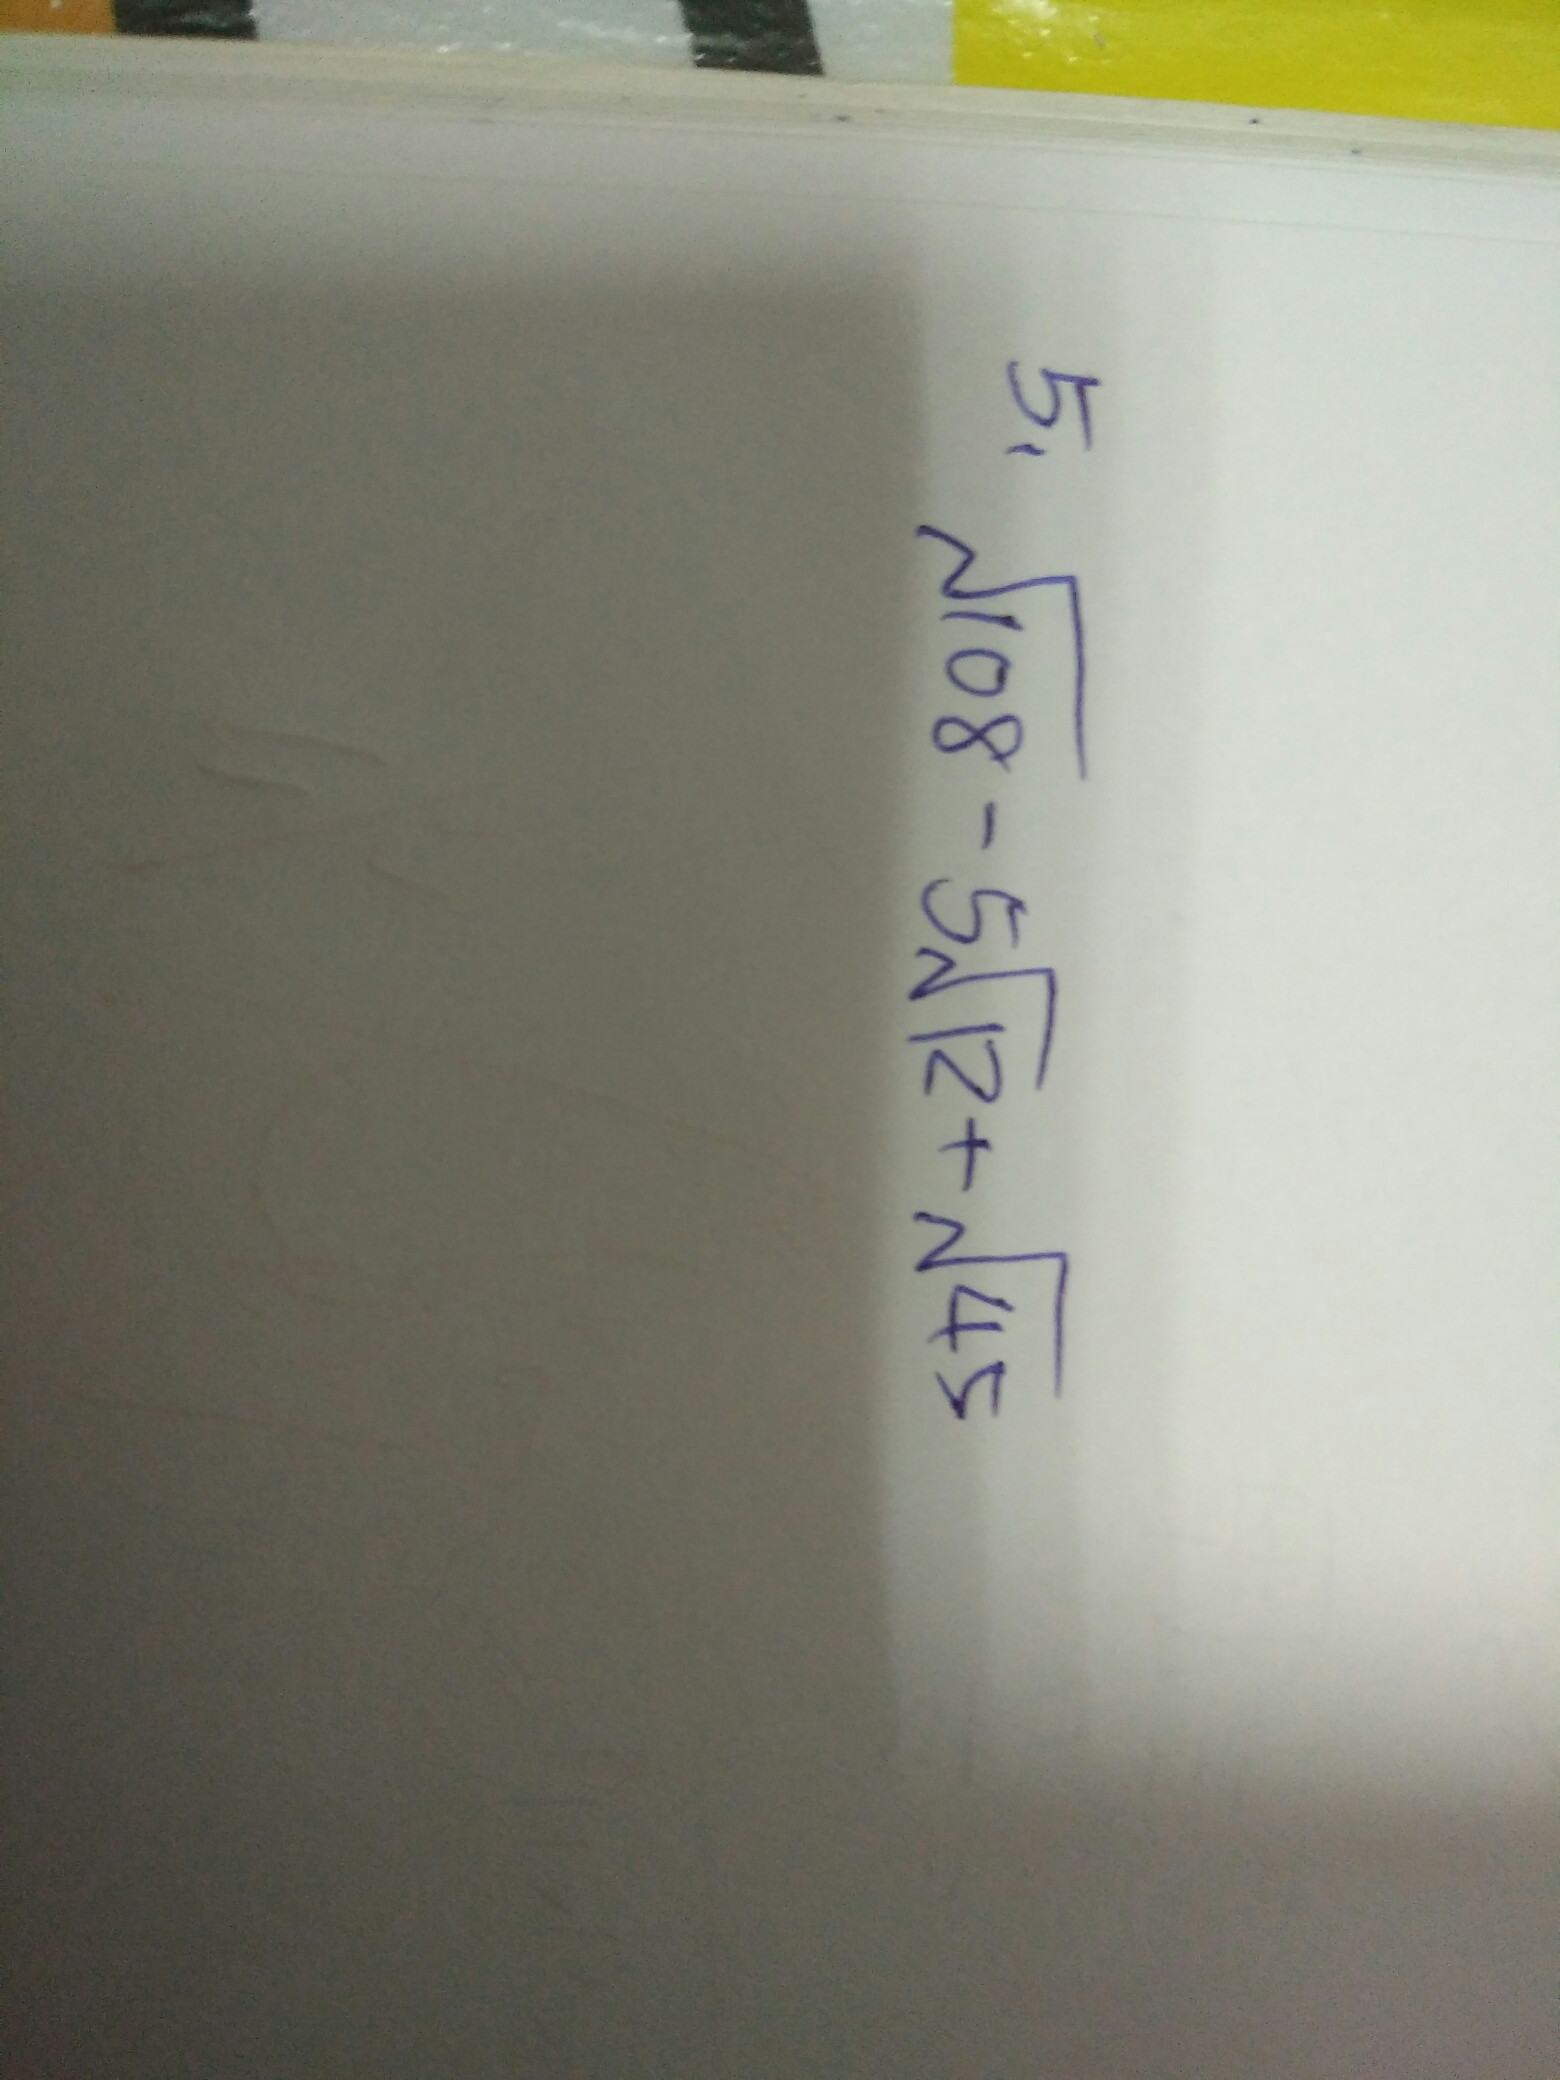 5. √108 - 5√12 + √45